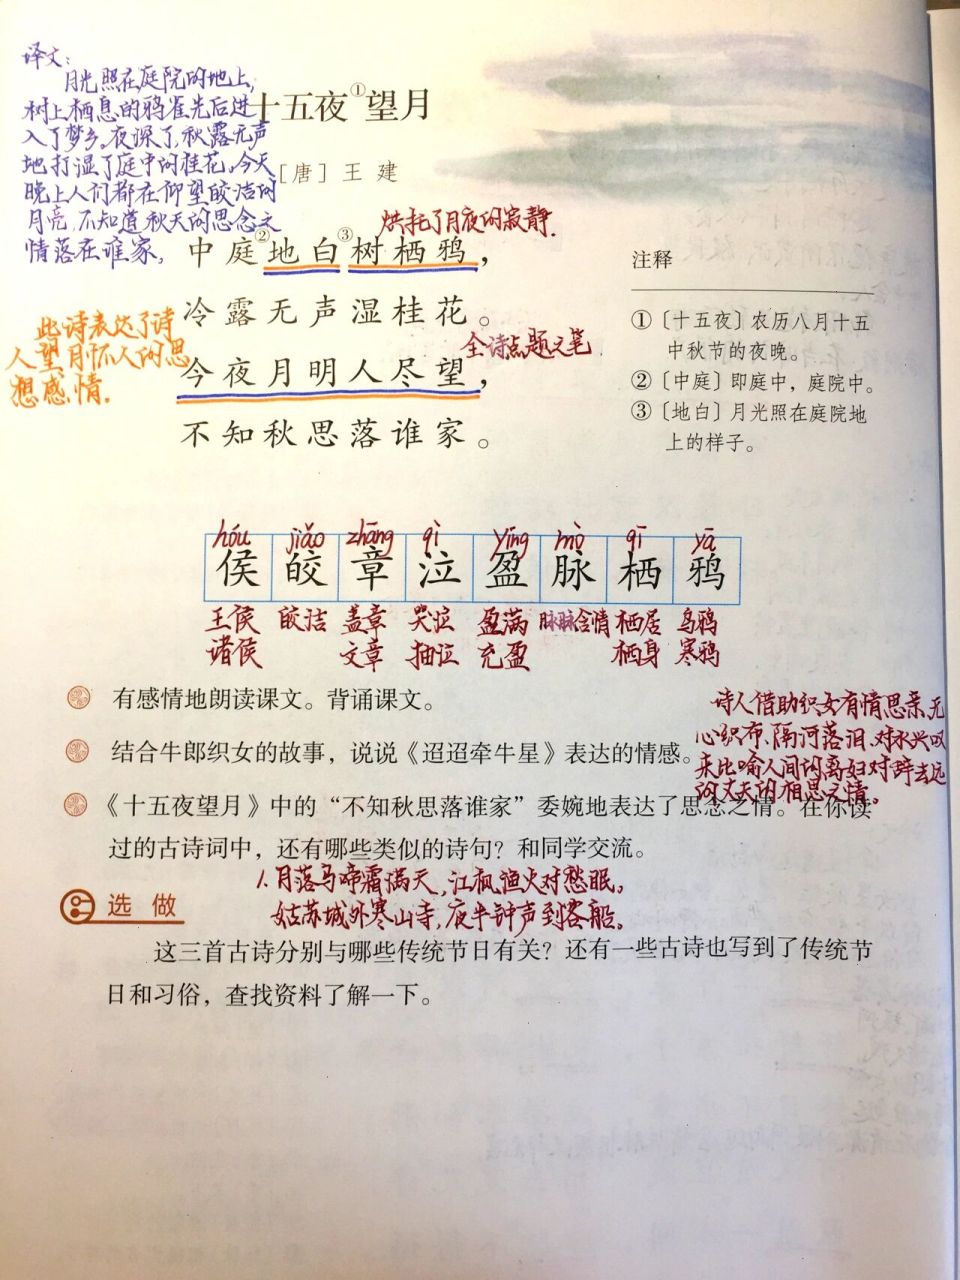 译文:
月光照在庭院的地上,
树上栖息的鸦雀先后进
入了梦乡。夜深了,秋露无声
地打湿了庭中的桂花。今天
晚上人们都在仰望皎洁的
月亮,不知道秋天的思念之
情落在谁家,
十五夜①望月
[唐] 王 建
烘托了月夜的寂静.
中庭②地白③树栖鸦，
冷露无声湿桂花。
全诗点题之笔
今夜月明人尽望，
不知秋思落谁家。
此诗表达了诗
人望月怀人的思
想感情.
注释
①〔十五夜〕农历八月十五
中秋节的夜晚。
②〔中庭〕即庭中，庭院中。
③〔地白〕月光照在庭院地
上的样子。
hóu jiǎo zhāng qì yíng mò qī yā
侯 皎 章 泣 盈 脉 栖 鸦
王侯 皎洁 盖章 哭泣 盈满 脉脉含情 栖居 乌鸦
诸侯 文章 抽泣 充盈 栖身 寒鸦
有感情地朗读课文。背诵课文。
结合牛郎织女的故事，说说《迢迢牵牛星》表达的情感。
诗人借助织女有情思亲无
心织布、隔河落泪、对水兴叹
来比喻人间的离妇对辞去远
的丈夫的相思之情。
《十五夜望月》中的“不知秋思落谁家”委婉地表达了思念之情。在你读
过的古诗词中，还有哪些类似的诗句？和同学交流。
1.月落乌啼霜满天,江枫渔火对愁眠。
姑苏城外寒山寺,夜半钟声到客船。
选做
这三首古诗分别与哪些传统节日有关？还有一些古诗也写到了传统节
日和习俗，查找资料了解一下。